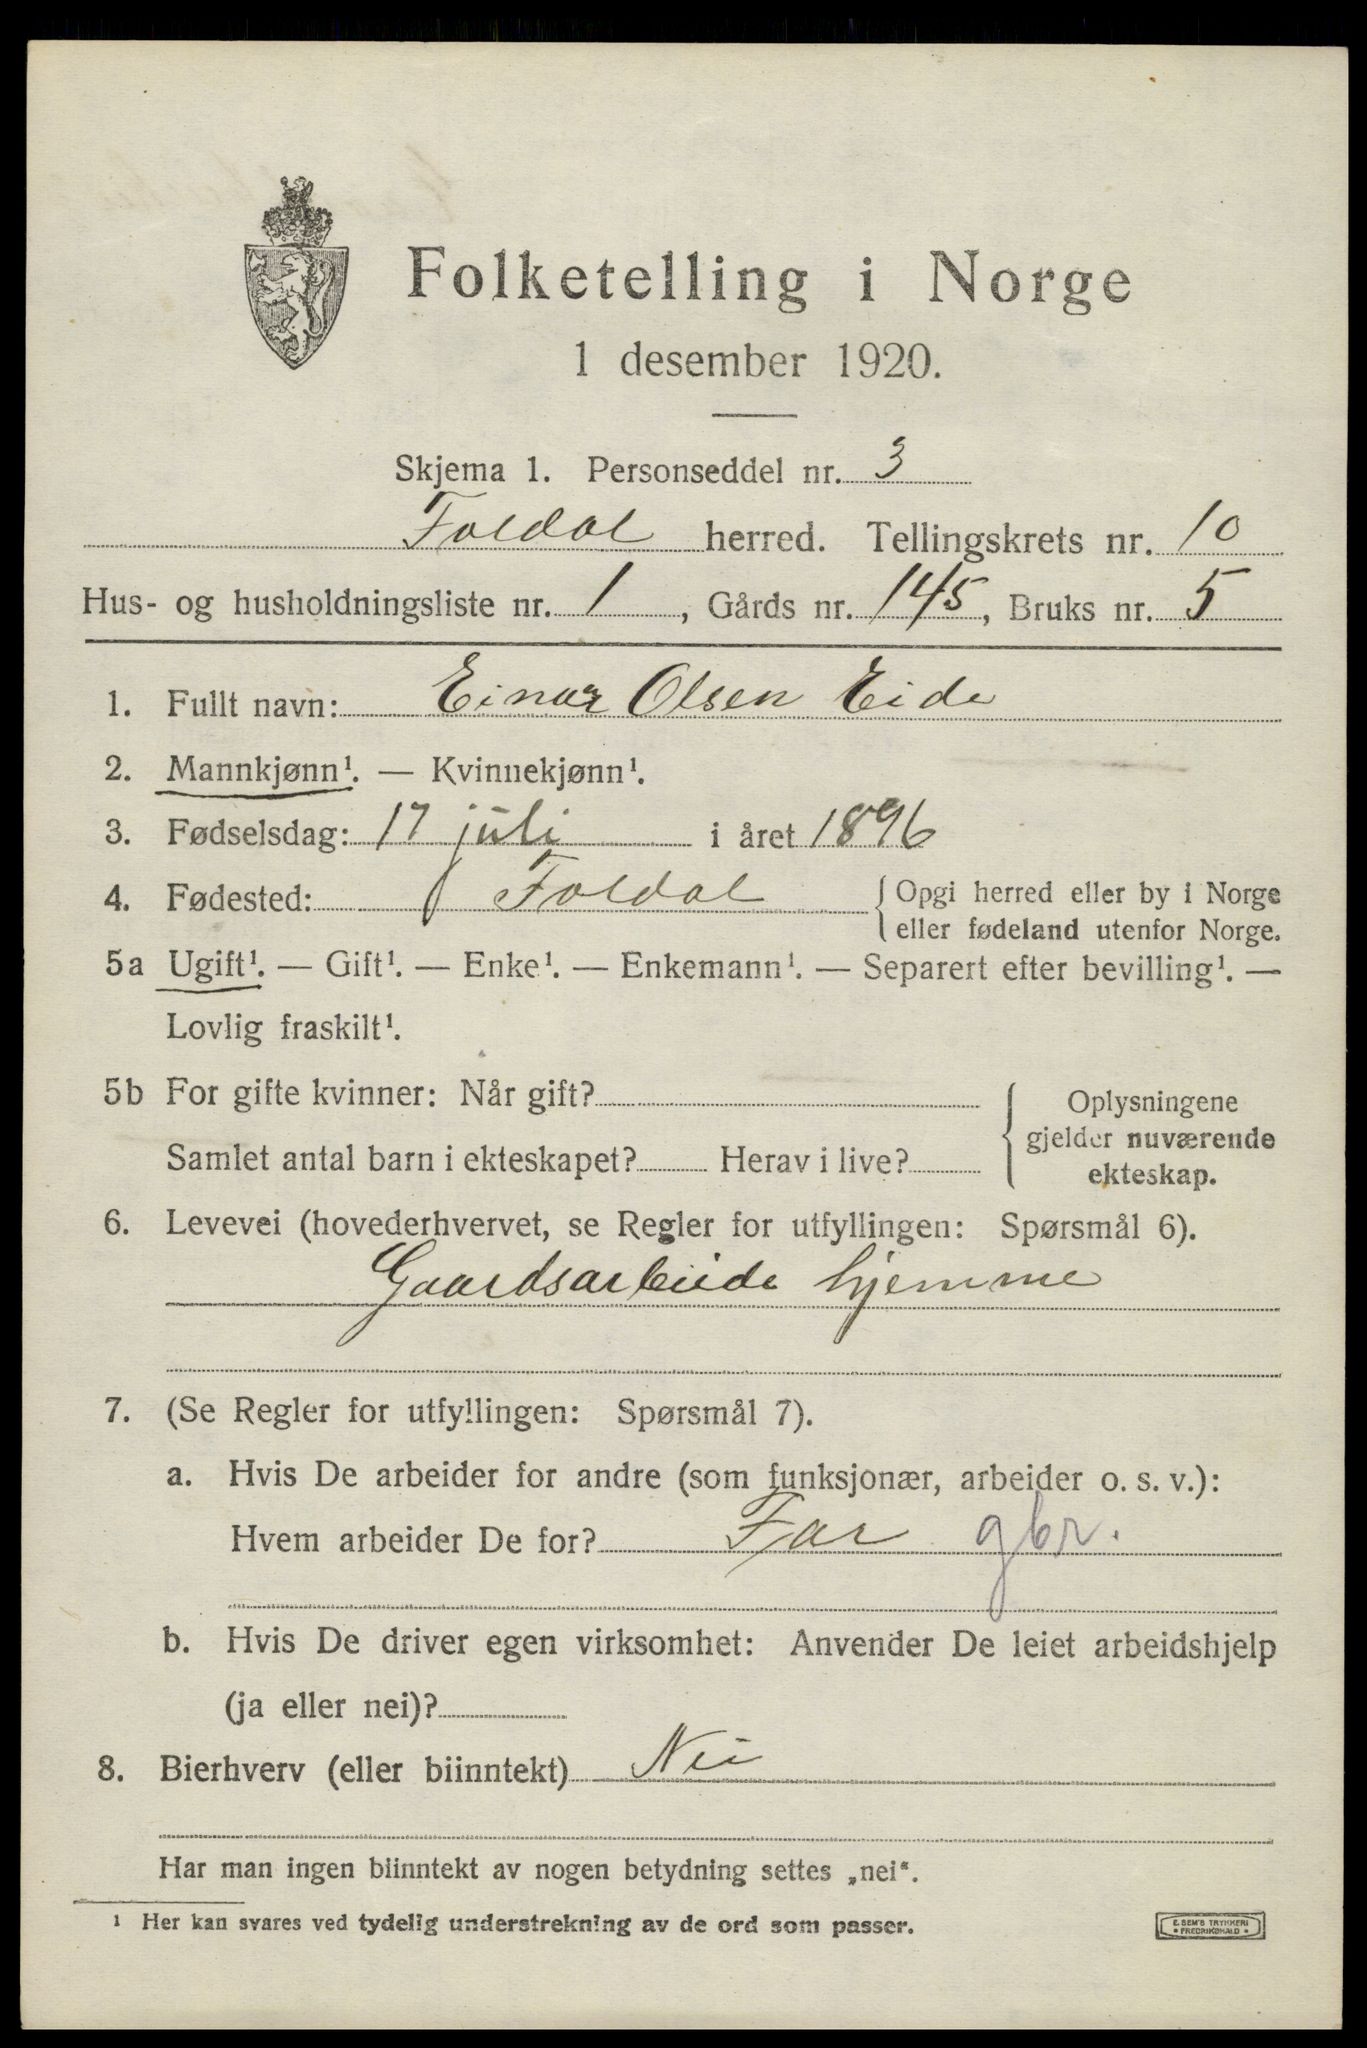 Folketelling i Norge
1 desember 1920.
Skjema 1. Personseddel nr. 3
Foldal herred. Tellingskrets nr. 10
Hus- og husholdningsliste nr. 1, Gårds nr. 145, Bruks nr. 5
1. Fullt navn: Einar Olsen Eide
2. Mannkjønn¹. — Kvinnekjønn¹.
3. Fødselsdag: 17 juli i året 1896
4. Fødested: Foldal { Opgi herred eller by i Norge
eller fødeland utenfor Norge.
5a Ugift¹. — Gift¹. — Enke¹. — Enkemann¹. — Separert efter bevilling¹. —
Lovlig fraskilt¹.
5b For gifte kvinner: Når gift? { Oplysningene
gjelder nuværende
Samlet antal barn i ekteskapet? Herav i live?
ekteskap.
6. Levevei (hovederhvervet, se Regler for utfyllingen: Spørsmål 6).
Gaardsarbeide hjemme
7. (Se Regler for utfyllingen: Spørsmål 7).
a. Hvis De arbeider for andre (som funksjonær, arbeider o. s. v.):
Hvem arbeider De for? Far gbr.
b. Hvis De driver egen virksomhet: Anvender De leiet arbeidshjelp
(ja eller nei)?
8. Bierhverv (eller biinntekt) Nei
Har man ingen biinntekt av nogen betydning settes „nei“.
¹ Her kan svares ved tydelig understrekning av de ord som passer.
E. SEM'S TRYKKERI
• FREDRIKSHALD •